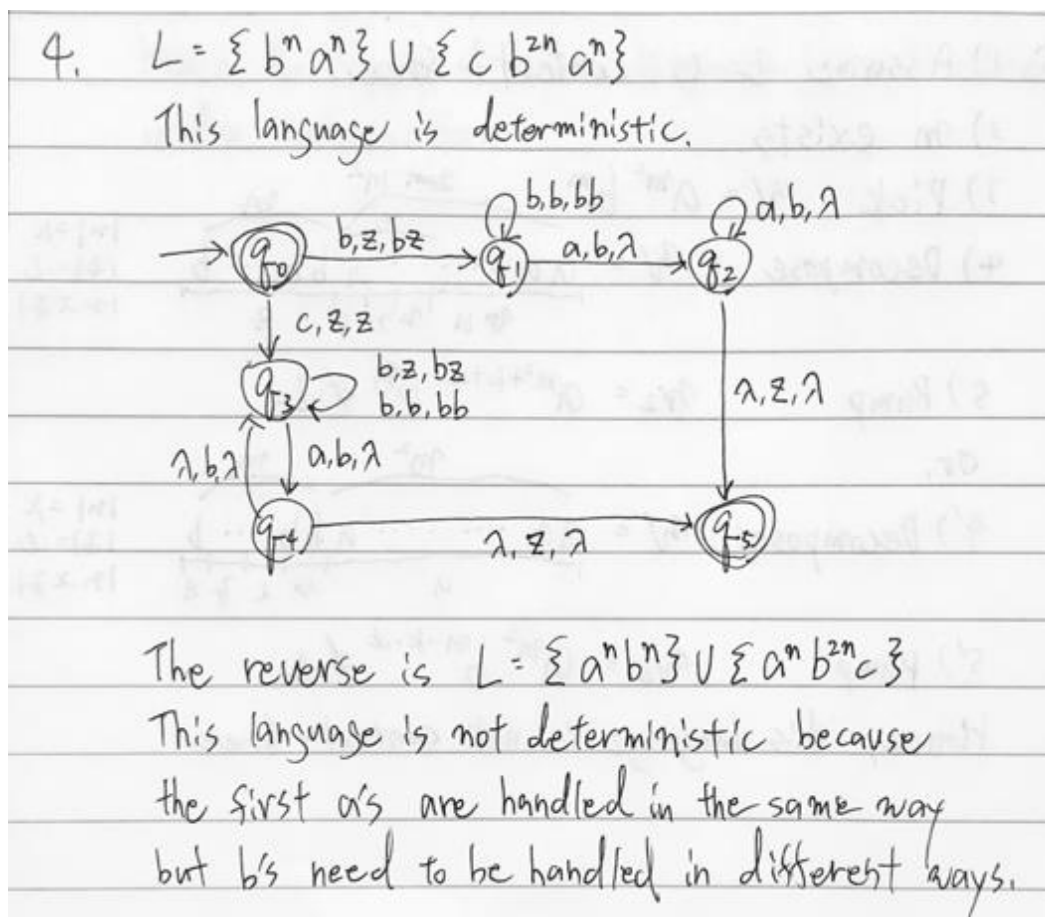 4. L = { bⁿ aⁿ } ∪ { c b²ⁿ aⁿ }
This language is deterministic.
b,b,bb
a,b,λ
q₀
b,z,bz
q₁
a,b,λ
q₂
c,z,z
q₃
b,z,bz
b,b,bb
λ,z,λ
λ,b,λ
a,b,λ
q₄
λ,z,λ
q₅
The reverse is L = { aⁿ bⁿ } ∪ { aⁿ b²ⁿ c }
This language is not deterministic because
the first a's are handled in the same way
but b's need to be handled in different ways.